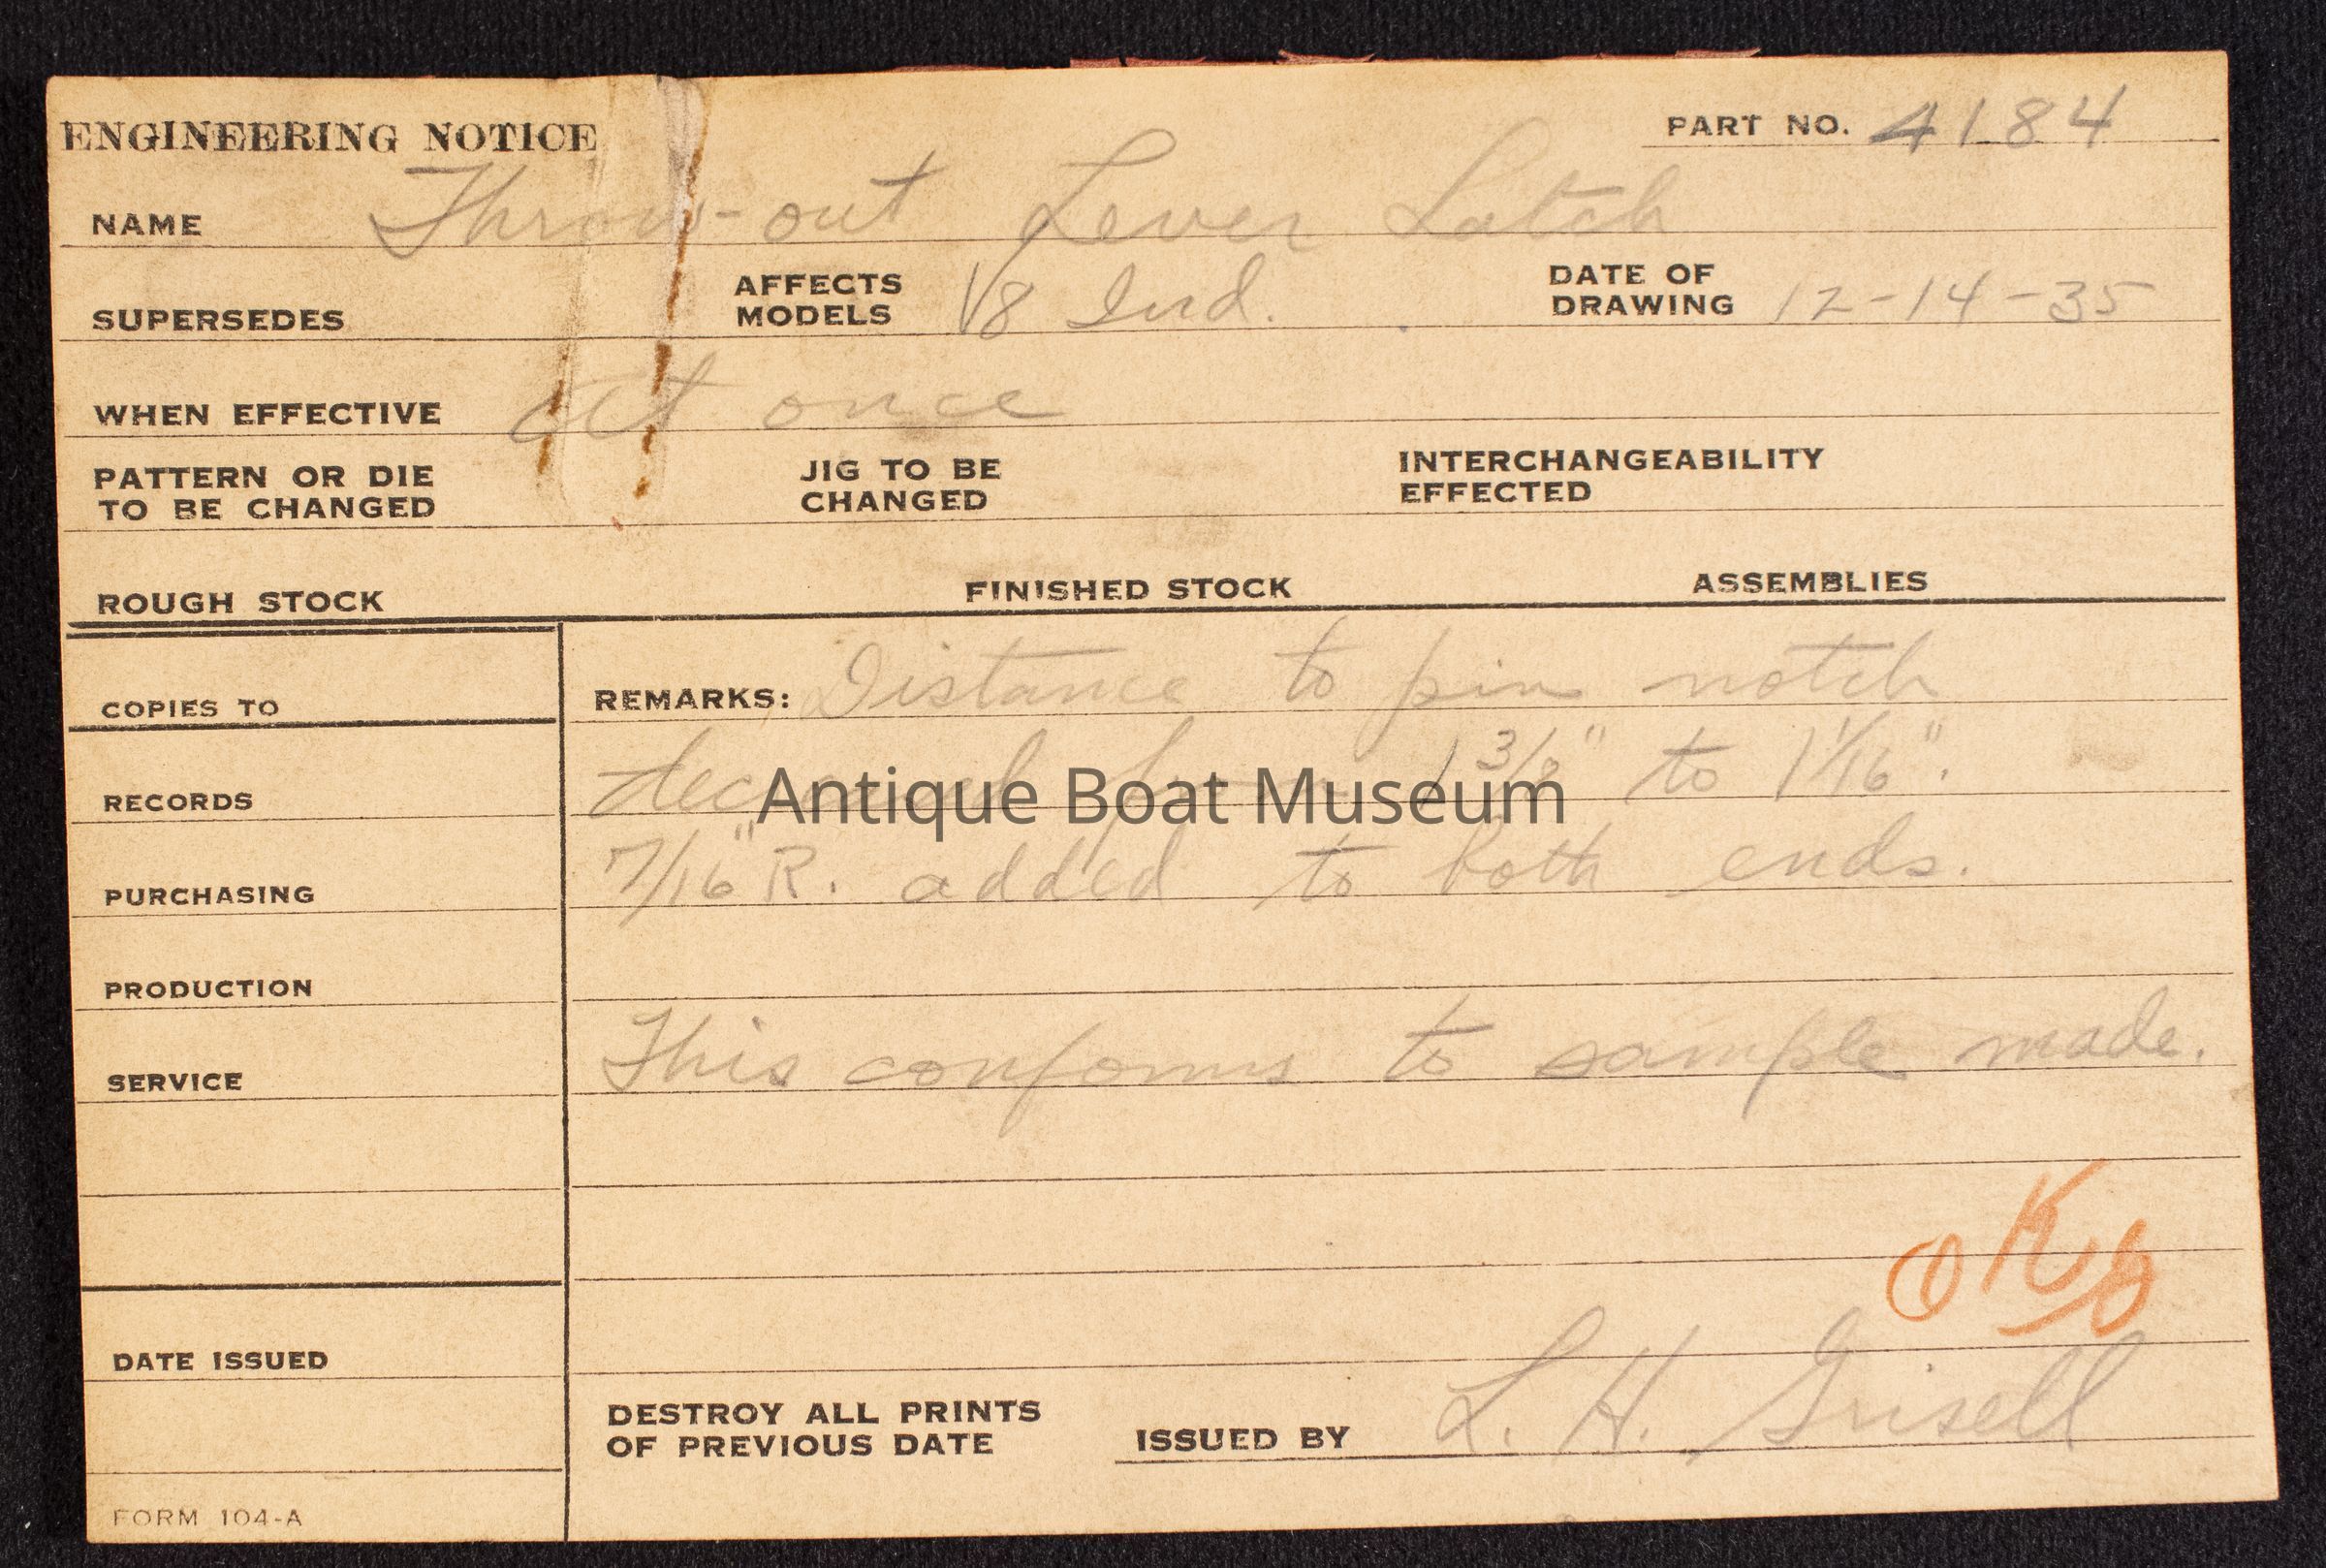 ENGINEERING NOTICE
PART NO. 4184
NAME Throw-out Lever Latch
SUPERSEDES AFFECTS MODELS V8 Ind. DATE OF DRAWING 12-14-35
WHEN EFFECTIVE at once
PATTERN OR DIE TO BE CHANGED JIG TO BE CHANGED INTERCHANGEABILITY EFFECTED
ROUGH STOCK FINISHED STOCK ASSEMBLIES
COPIES TO
RECORDS
PURCHASING
PRODUCTION
SERVICE
DATE ISSUED
FORM 104-A
REMARKS: Distance to pin notch
decreased from 1 3/8" to 1 1/16".
7/16" R. added to both ends.
This conforms to sample made.
OK
DESTROY ALL PRINTS
OF PREVIOUS DATE
ISSUED BY L. H. Grisell
Antique Boat Museum